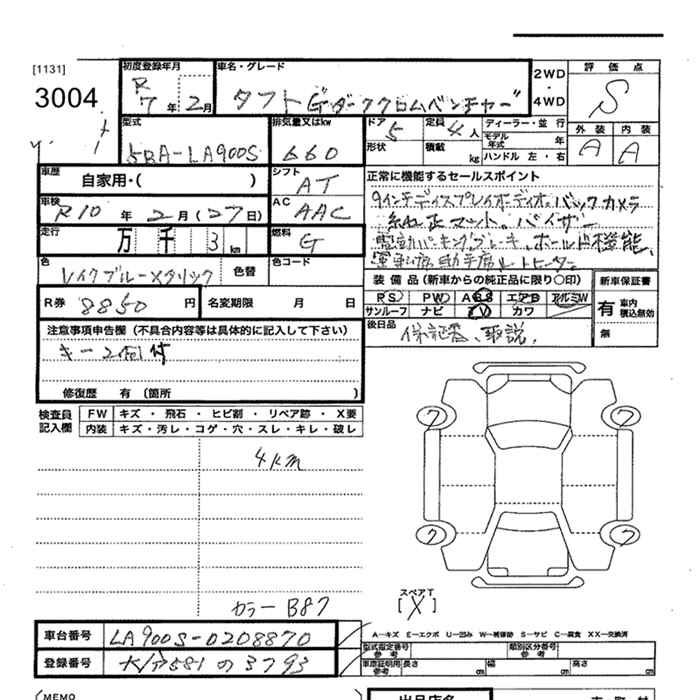 [1131]
3004
初度登録年月
R
7 年 2 月
車名・グレード
タフト Gダーククロムベンチャー
2WD
・
4WD
評価点
S
外装 内装
A A
型式
5BA-LA900S
排気量又はkw
660
ドア 5
形状
定員 4 人
積載 kg
ディーラー・並行
モデル年式 年
ハンドル 左・右
車歴
自家用・( )
シフト
AT
車検
R10 年 2 月 (27 日)
AC
AAC
走行
万 千 3 km
燃料
G
色
レイクブルーメタリック
色替
色コード
R券 8850 円
名変期限 月 日
正常に機能するセールスポイント
9インチディスプレイオーディオ、バックカメラ
純正マット、バイザー
電動パーキングブレーキ、ホールド機能、
運転席、助手席シートヒーター
装備品 (新車からの純正品に限り〇印)
PS PW ABS エアB アルミW
サンルーフ ナビ TV カワ
新車保証書
有 車内積込無効
無
後日品
保証書、取説
注意事項申告欄 (不具合内容等は具体的に記入して下さい)
キー2個付
修復歴 有 (箇所 )
検査員記入欄
FW キズ ・ 飛石 ・ ヒビ割 ・ リペア跡 ・ X要
内装 キズ・汚レ・コゲ・穴・スレ・キレ・破レ
4km
7 7
7 7
スペアT
[X]
カラー B87
車台番号 LA900S-0208870
登録番号 581 の 3793
A－キズ E－エクボ U－凹み W－補修跡 S－サビ C－腐食 XX－交換済
型式指定番号 参考
類別区分番号 参考
車庫証明用 参考 長さ cm 幅 cm 高さ cm
(MEMO
出品店名